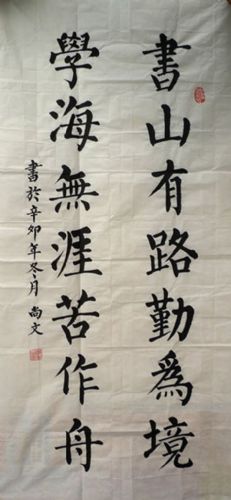 書山有路勤為境
學海無涯苦作舟
書於辛卯年冬月尚文